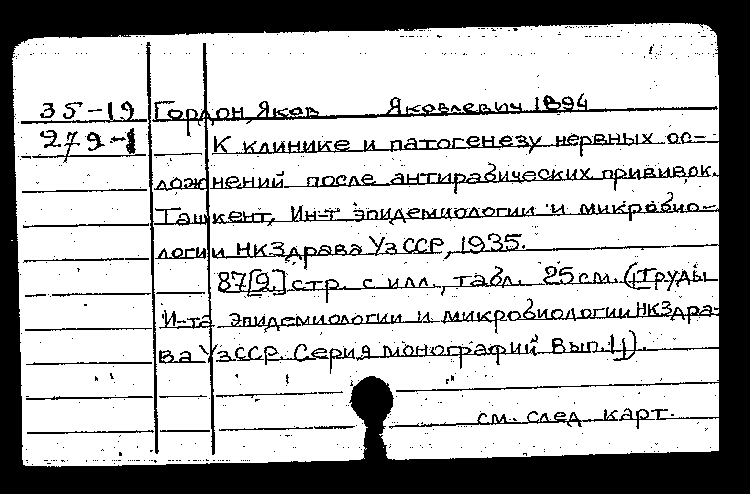 35-19 Гордон, Яков Яковлевич 1894
279-1 К клинике и патогенезу нервных ос-
ложнений после антирабических прививок.
Ташкент, Ин-т эпидемиологии и микробио-
логии НКЗдрава УзССР, 1935.
87[9.] стр. с илл., табл. 25 см. (Труды
И-та эпидемиологии и микробиологии НКЗдра-
ва УзССР. Серия монографий Вып. 1).
см. след. карт.